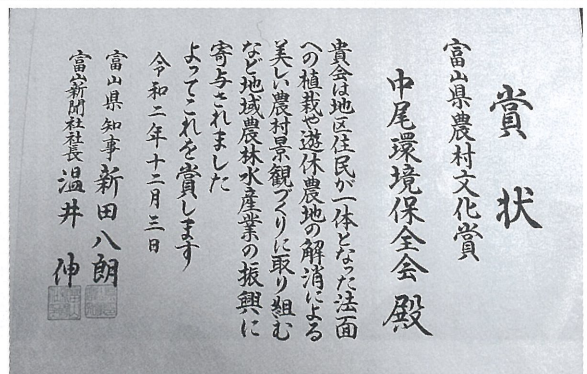 賞状
富山県農村文化賞
中尾環境保全会殿
貴会は地区住民が一体となった法面
への植栽や遊休農地の解消による
美しい農村景観づくりに取り組む
など地域農林水産業の振興に
寄与されました
よってこれを賞します
令和二年十二月三日
富山県知事 新田八朗
富山新聞社社長 温井伸